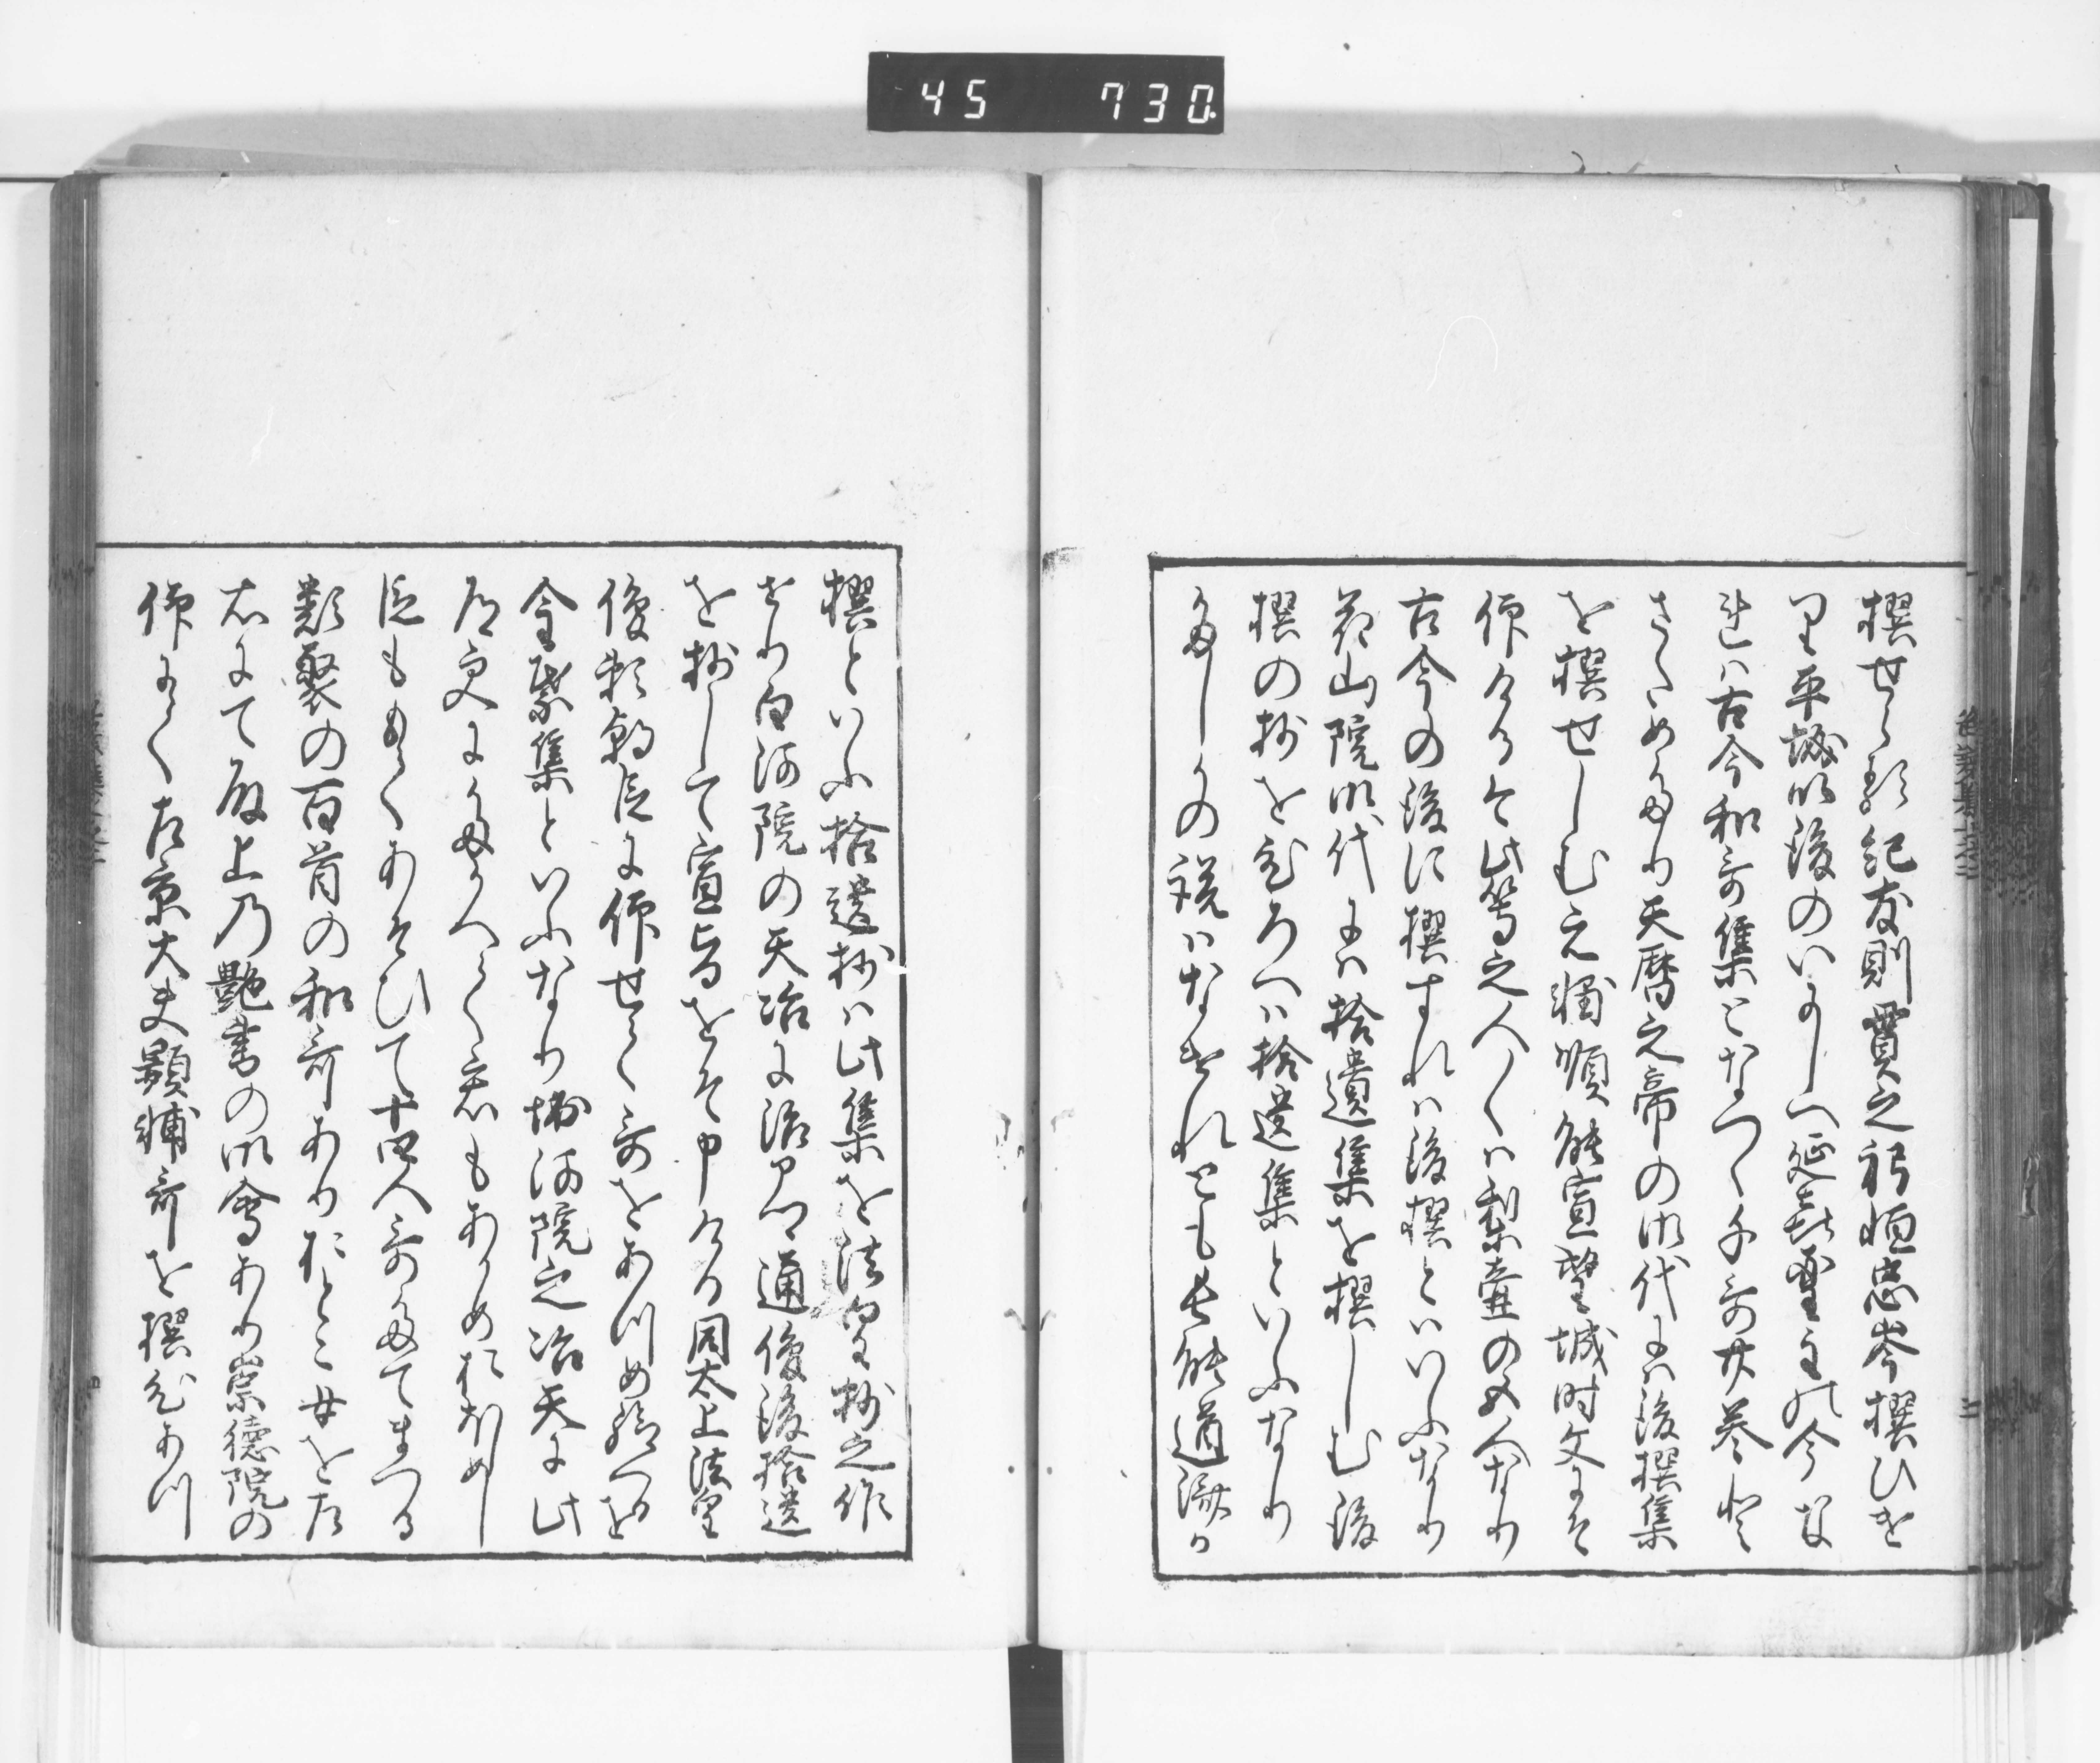 45 730
撰せらる紀友則貫之躬恒忠岑撰ひを
り平城の後のいにしへ延喜聖主の今な
れは古今和哥集となつく千哥廿巻に
さためたり天暦之帝の御代には後撰集
を撰せしむ元輔順能宣望城時文にそ
仰ける此等之人〱は梨壺の五人なり
古今の後に撰すれは後撰といふなり
花山院御代には拾遺集を撰しむ後
撰の抄をひろへは拾遺集といふなり
たしかの説はなけれとも長能道済か
撰といふ拾遺抄は此集を法皇抄之作
せり白河院の天治に治つ通俊後拾遺
を抄して宣旨をそ申ける同太上法皇
俊頼朝臣に仰せて哥をあつめ給へは
金葉集といふなり堀河院之治天に此
道更にたかへく君もあかめおほしめし
臣ももてあそひて十四人哥たてまつる
類聚の百首の和哥ありおとこ女を左
右にて殿上乃艶書の御會あり崇徳院の
仰にて左京大夫顕輔哥を撰ひあつ